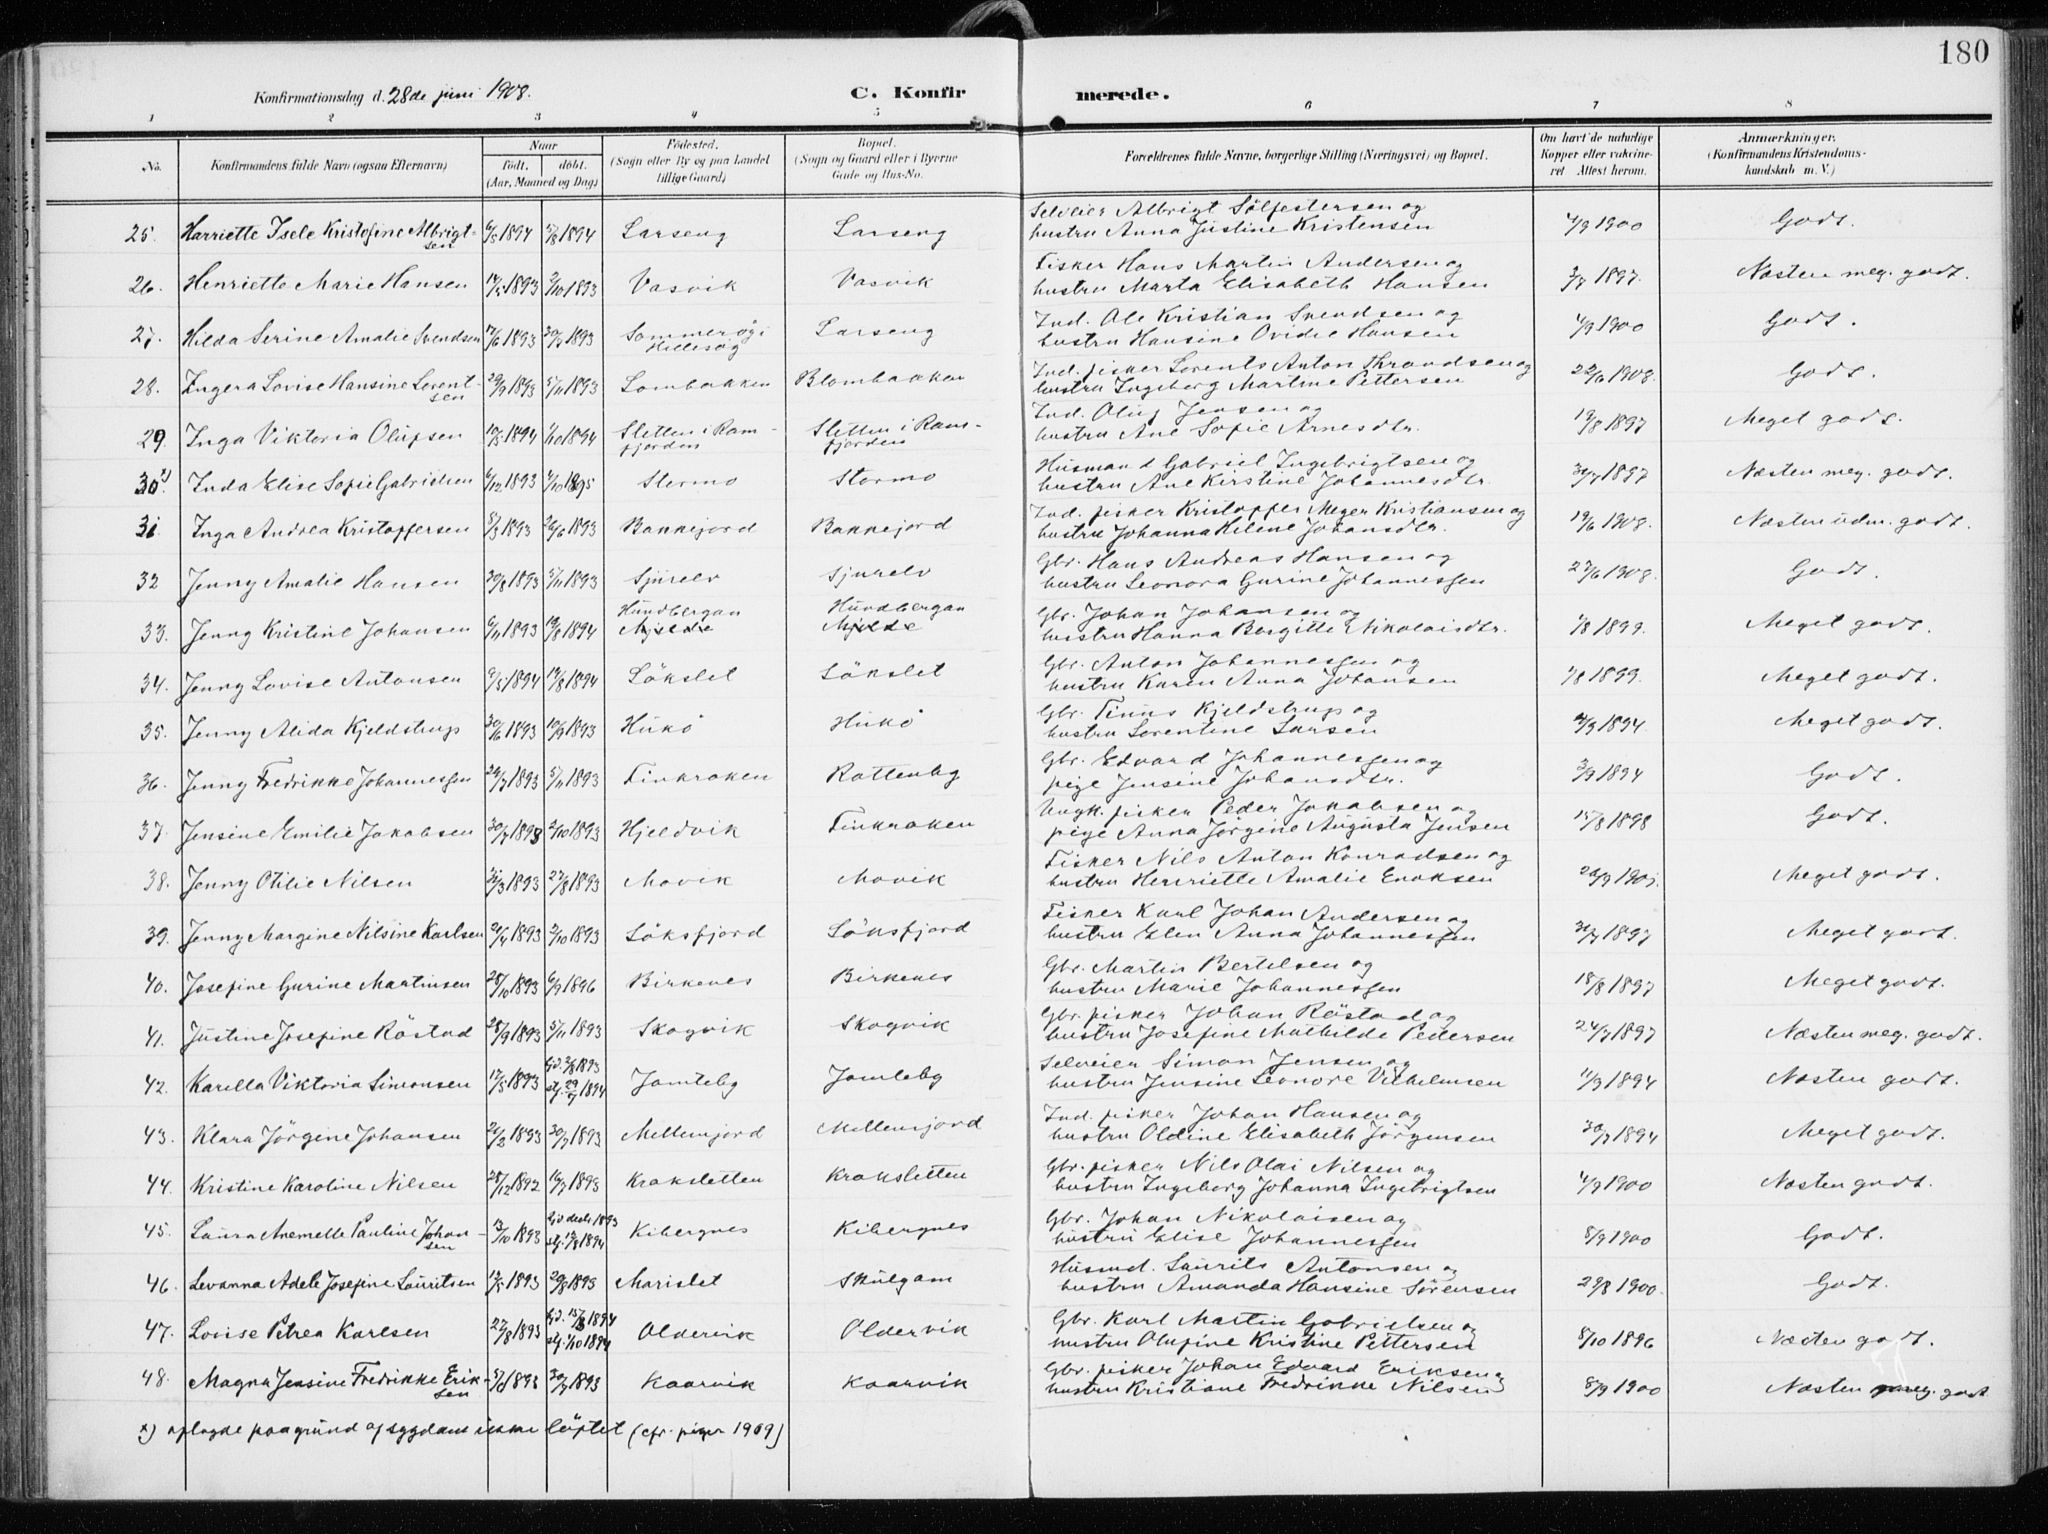 180
Konfirmationsdag d. 28de juni 1908. C. Konfirmerede.
1 2 3 4 5 6 7 8
No. Konfirmandens fulde Navn (ogsaa Efternavn) Naar født, døbt. (Aar, Maaned og Dag) Fødested. (Sogn eller By og paa Landet tillige Gaard) Bopæl. (Sogn og Gaard eller i Byerne Gade og Hus-No. Forældrenes fulde Navne, borgerlige Stilling (Næringsvei) og Bopæl. Om havt de naturlige Kopper eller vakcineret Attest herom. Anmærkninger. (Konfirmandens Kristendomskundskab m. V.)
25. Harriette Isele Kristofine Albrigtsen 6/5 1894 5/8 1894 Larseng Larseng Selveier Albrigt Sölfestersen og hustru Anna Justine Kristensen 4/9 1900 Godt.
26. Henriette Marie Hansen 2/10 1893 Vasvik Vasvik Fisker Hans Martin Andersen og hustru Marta Elisabeth Hansen 3/7 1897. Næsten meg. godt.
27. Hilda Serine Amalie Svendsen 17/6 1893 30/7 1893 Sommerøy i Hillesøy Larseng Ind. Ole Kristian Svendsen og hustru Hansine Ovidie Hansen 4/9 1900 Godt.
28. Ingera Lovise Hansine Lorentsen 29/9 1893 5/11 1893 Lombakken Blombakken Ind. fisker Lorents Anton Thrandsen og hustru Ingeborg Martine Pettersen 22/6 1908. Godt.
29. Inga Viktoria Olufsen 10/5 1894 1/10 1894 Sletten i Ramfjorden Sletten i Ramfjorden Ind. Oluf Jensen og hustru Ane Sofie Arnesdtr. 19/8 1897 Meget godt.
30. x) Inda Elise Sofie Gabrielsen 6/12 1893 6/10 1895 Stormo Stormo Husmand Gabriel Ingebrigtsen og hustru Ane Kirstine Johannesdtr. 30/7 1897 Næsten meg. godt.
31. Inga Andrea Kristoffersen 8/3 1893 26/6 1893 Bakkejord Bakkejord Ind. fisker Kristoffer Meyer Kristiansen og hustru Johanna Helene Johansdtr. 19/6 1908. Næsten udm. godt.
32 Jenny Amalie Hansen 30/8 1893 5/11 1893 Sjurelv Sjurelv Gbr. Hans Andreas Hansen og hustru Leonora Gurine Johannessen 27/6 1908. Godt.
33. Jenny Kristine Johansen 6/11 1893 19/8 1894 Hundbergan Mjelde Hundbergan Mjelde Gbr. Johan Johansen og hustru Hanna Bergitte Nikolaisdtr. 1/8 1899. Meget godt.
34. Jenny Lovise Antonsen 9/5 1894 19/8 1894 Lökslet Lökslet Gbr. Anton Johannessen og hustru Karen Anna Johansen 1/8 1899. Meget godt.
35. Jenny Alida Kjeldstrup 30/6 1893 10/9 1893 Hukö Hukö Gbr. Tinus Kjeldstrup og hustru Lorentine Larsen 2/9 1894 Meget godt.
36. Jenny Fredrikke Johannessen 24/7 1893 5/11 1893 Finkroken Rottenby Gbr. Edvard Johannessen og pige Jensine Johansdtr. 3/9 1894 Godt.
37. Jensine Emilie Jakobsen 30/7 1893 2/10 1893 Hjeldvik Finkroken Ungk. fisker Peder Jakobsen og pige Anna Jörgine Augusta Jensen 15/8 1898 Godt.
38. Jenny Otilie Nilsen 31/3 1893 27/8 1893 Movik Movik Fisker Nils Anton Konradsen og hustru Henriette Amalie Enoksen Meget godt.
39. Jenny Margine Nilsine Karlsen 21/4 1893 2/10 1893 Löksfjord Löksfjord Fisker Karl Johan Andersen og hustru Elen Anna Johannessen 31/7 1897 Meget godt.
40. Josefine Gurine Martinsen 28/10 1893 6/9 1896 Birkenes Birkenes Gbr. Martin Bertelsen og hustru Marie Johannessen 18/8 1897 Meget godt.
41. Justine Josefine Röstad 28/9 1893 5/11 1893 Skogvik Skogvik Gbr. fisker Johan Röstad og hustru Josefine Mathilde Pedersen 24/7 1897 Næsten meg. godt.
42. Karilla Viktoria Simonsen 17/5 1893 hjd. 2/8 1893 stf. 29/7 1894 Jamteby Jamteby Selveier Simon Jensen og hustru Jensine Leonore Vilhelmsen 11/9 1894 Næsten godt.
43. Klara Jörgine Johansen 26/2 1893 30/7 1893 Mellemjord Mellemjord Ind. fisker Johan Hansen og hustru Oldine Elisabeth Jörgensen 30/7 1894 Meget godt.
44. Kristine Karoline Nilsen 28/12 1892 16/7 1893 Kraksletten Kraksletten Gbr. fisker Nils Olai Nilsen og hustru Ingeborg Johanna Ingebrigtsen 4/9 1900 Næsten godt.
45. Laura Anemelle Pauline Johansen 13/10 1893 hjd decbr 1893 stf. 12/8 1894 Kibergnes Kibergnes Gbr. Johan Nikolaisen og hustru Elise Johannessen 8/9 1900 Godt.
46. Levanna Adele Josefine Lauritsen 12/5 1893 20/8 1893 Marislet Skulgam Husmd. Laurits Antonsen og hustru Amanda Hansine Sörensen 29/8 1900. Godt.
47. Lovise Petrea Karlsen 22/8 1893 hjd. 15/3 1894 stf. 1/10 1894 Oldervik Oldervik Gbr. Karl Martin Gabrielsen og hustru Olufine Kristine Pettersen 8/10 1896 Næsten godt.
48. Magna Jensine Fredrikke Eriksen 5/6 1893 30/7 1893 Kaarvik Kaarvik Gbr. fisker Johan Edvard Eriksen og hustru Kristiane Fredrikke Nilsen 8/9 1900 Næsten meg. godt
x) aflagde paa grund af sygdom ikke löftet (cfr. piger 1909)